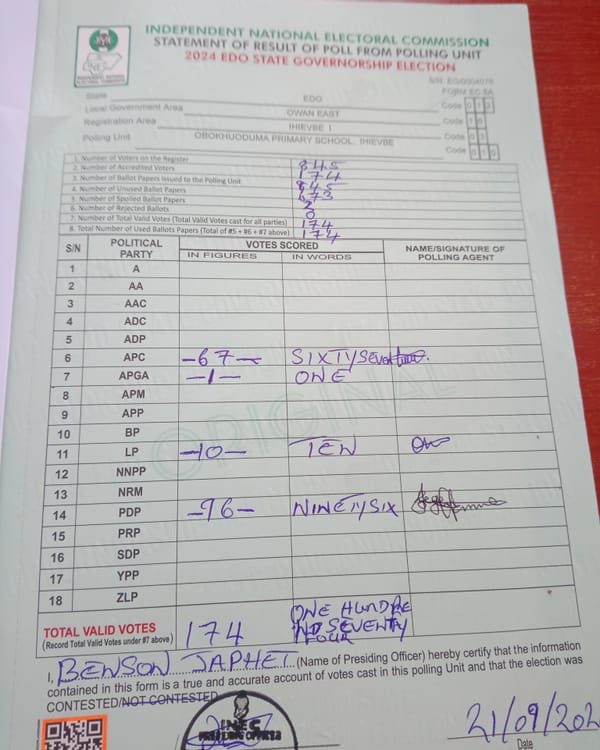 INDEPENDENT NATIONAL ELECTORAL COMMISSION
STATEMENT OF RESULT OF POLL FROM POLLING UNIT
2024 EDO STATE GOVERNORSHIP ELECTION
FORM EC 8A
State EDO Code
Local Government Area OWAN EAST Code
Registration Area IHIEVBE I Code
Polling Unit OBOKHUODUMA PRIMARY SCHOOL, IHIEVBE Code
1. Number of Voters on the Register 845
2. Number of Accredited Voters 174
3. Number of Ballot Papers Issued to the Polling Unit 845
4. Number of Unused Ballot Papers
5. Number of Spoiled Ballot Papers
6. Number of Rejected Ballots 0
7. Number of Total Valid Votes (Total Valid Votes cast for all parties) 174
8. Total Number of Used Ballots Papers (Total of #5 + #6 + #7 above) 174
S/N POLITICAL PARTY VOTES SCORED NAME/SIGNATURE OF POLLING AGENT
IN FIGURES IN WORDS
1 A
2 AA
3 AAC
4 ADC
5 ADP
6 APC -67- SIXTYSEVEN
7 APGA -1- ONE
8 APM
9 APP
10 BP
11 LP -10- TEN
12 NNPP
13 NRM
14 PDP -96- NINETYSIX
15 PRP
16 SDP
17 YPP
18 ZLP
TOTAL VALID VOTES 174 ONE HUNDRE
(Record Total Valid Votes under #7 above) ND SEVENTY
FOUR
I, BENSON JAPHET (Name of Presiding Officer) hereby certify that the information
contained in this form is a true and accurate account of votes cast in this polling Unit and that the election was
CONTESTED/NOT CONTESTED
INEC
PRESIDING OFFICER
21/09/202
Date
ORIGINAL